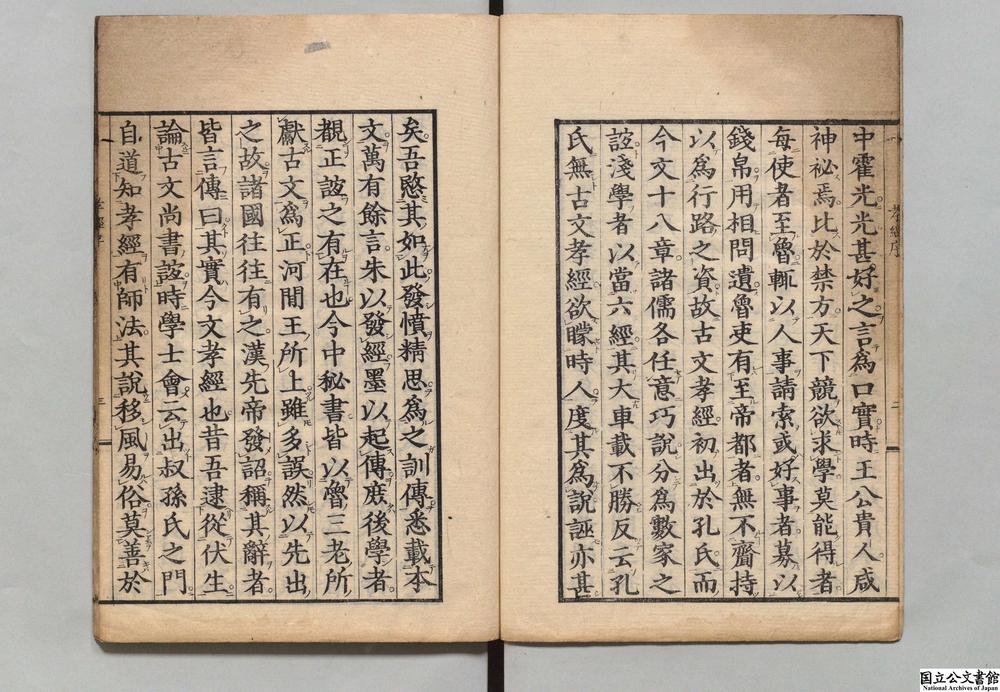 中霍光光甚好之言爲口實時王公貴人咸
神祕焉比於禁方天下競欲求學莫能得者
每使者至魯輒以人事請索或好事者募以
錢帛用相問遺魯吏有至帝都者無不齎持
以爲行路之資故古文孝經初出於孔氏而
今文十八章諸儒各任意巧說分爲數家之
誼淺學者以當六經其大車載不勝反云孔
氏無古文孝經欲矇時人度其爲說誣亦甚
孝經序
二
矣吾愍其如此發憤精思爲之訓傳悉載本
文萬有餘言朱以發經墨以起傳庶後學者
覩正誼之有在也今中祕書皆以魯三老所
獻古文爲正河間王所上雖多誤然以先出
之故諸國往往有之漢先帝發詔稱其辭者
皆言傳曰其實今文孝經也昔吾逮從伏生
論古文尚書誼時學士會云出叔孫氏之門
自道知孝經有師法其說移風易俗莫善於
孝經序
三
国立公文書館
National Archives of Japan